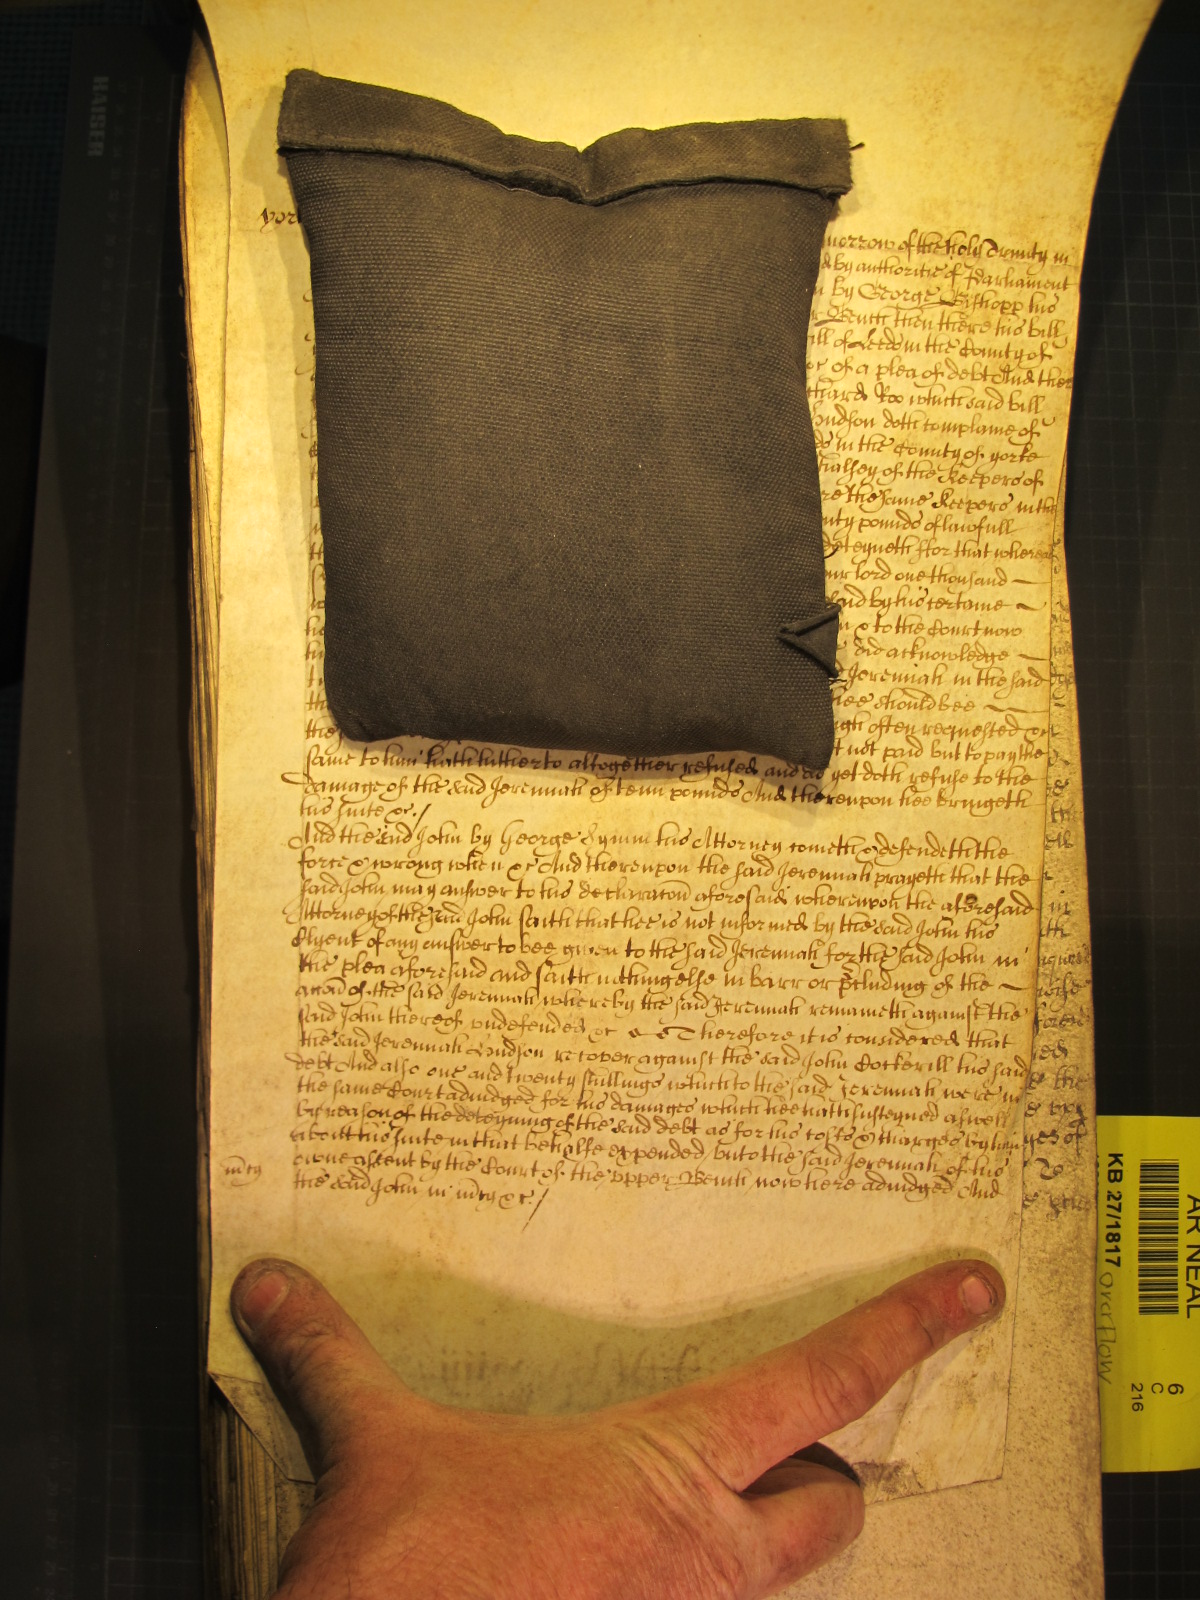 yor
morrow of the holy Trinity in
d by authoritie of Parliament
n by George Bishopp his
r Bench then there his bill
ill of Leeds in the County of
of a plea of debt And ther
chard Roo which said bill
Hudson doth complaine of
ds in the County of yorke
rshalsey of the Keepers of
re the same Keepers in the
nty pounds of lawfull
deteyneth ffor that whereas
our lord one thousand
said by his certaine
n & to the Court now
did acknowledge
d Jeremiah in the said
hee should bee
ugh often requested &c
the t not paid but to pay the
same to him hath hitherto altogether refused and as yet doth refuse to the
damage of the said Jeremiah of tenn pounds And thereupon hee bringeth
his suite &c /
And the said John by George Symm his Attorney cometh & defendeth the
force & wrong when &c And thereupon the said Jeremiah prayeth that the
said John may answer to his declaracon aforesaid whereupon the aforesaid
Attorney of the said John saith that hee is not informed by the said John his
Clyent of any answer to bee given to the said Jeremiah for the said John in
the plea aforesaid and saith nothing else in barr or precluding of the
accon of the said Jeremiah whereby the said Jeremiah remaineth against the
said John thereof undefended &c Therefore it is considered that
the said Jeremiah Hudson recover against the said John Cockerill his said
debt And also one and twenty shillings which to the said Jeremiah were in
the same Court adiudged for his damages which hee hath susteyned aswell
by reason of the deteyning of the said debt as for his costs & charges by him
about his suite in that behalfe expended, but to the said Jeremiah of his
owne assent by the Court of the upper Bench now here adiudged And
mcy the said John in mcy &c /
KB 27/1817
overflow
AR NEAL
6
C
216
RAISER